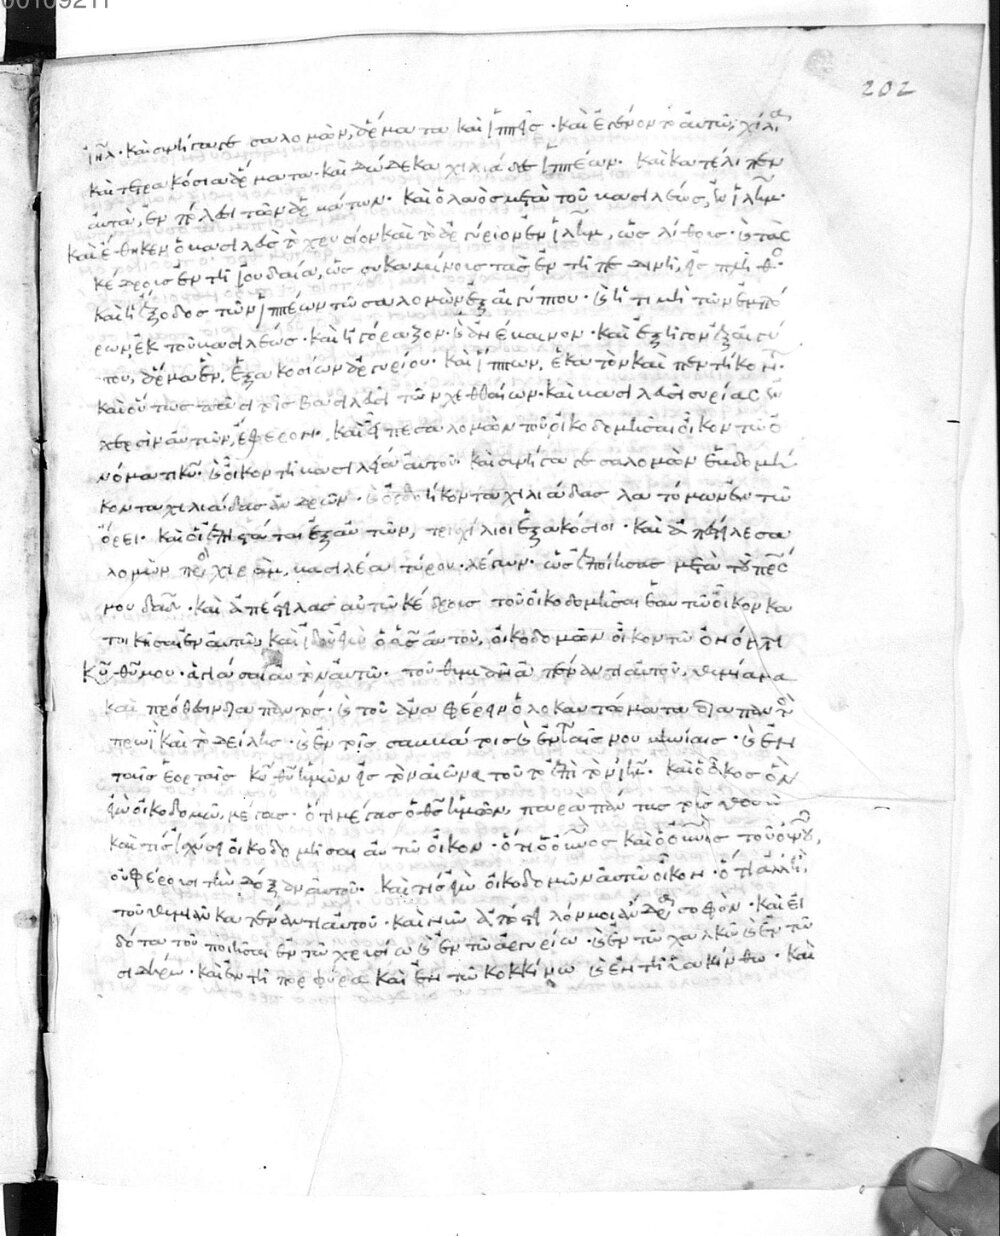 202
ἰη̅λ. καὶ συνήγαγε σαλομὼν, ἅρματα καὶ ἱππεῖς. καὶ ἐγένοντο αὐτῶ, χίλια
καὶ τετρακόσια ἅρματα. καὶ δώδεκα χιλιάδες ἱππέων. καὶ κατέλιπεν
αὐτὰ, ἐν πόλεσι τῶν ἁρμάτων. καὶ ὁ λαὸς μετὰ τοῦ βασιλέως, ἐν ἰλη̅μ.
καὶ ἔθηκεν ὁ βασιλεὺς τὸ χρυσίον καὶ τὸ ἀργύριον ἐν ἰλη̅μ, ὡς λίθοις. καὶ τὰς
κέδροις ἐν τῆ ἰουδαία, ὡς συκαμίνοις τὰς ἐν τῆ πεδινῆ, εἰς πλῆθο
καὶ ἡ ἔξοδος τῶν ἱππέων τῶ σαλομὼν ἐξ αἰγύπτου. καὶ ἡ τιμὴ τῶν ἐμπό
ρων ἐκ τοῦ βασιλέως. καὶ ἠγόραζον. καὶ ἀνέβαινον. καὶ ἐξῆγον ἐξ αἰγύ
που, ἅρμα ἓν, ἑξακοσίων ἀργυρίου. καὶ ἵππων, ἑκατὸν καὶ πεντήκον.
καὶ οὕτως πᾶσι τοῖς βασιλεῦσι τῶν χεθθαίων. καὶ βασιλεῦσι συρίας ἐν
χερσὶν αὐτῶν, ἔφερον. καὶ εἶπε σαλομὼν τοῦ οἰκοδομῆσαι οἶκον τῶ ὀ
νόματι κυ̅. καὶ οἶκον τῆ βασιλεία αὐτοῦ. καὶ συνήγαγε σαλομὼν ἑβδομή
κοντα χιλιάδας ἀνδρῶν. καὶ ὀγδοήκοντα χιλιάδας λατόμων ἐν τῶ
ὄρει. καὶ οἱ ἐπιστάται ἐξ αὐτῶν, τρισχίλιοι ἑξακόσιοι. καὶ ἀπέστειλε σα
λομὼν πρὸς χιρὰμ, βασιλέα τύρου. λέγων. ὡς ἐποίησας μετὰ τοῦ πρς
μου δαδ. καὶ ἀπέστειλας αὐτῶ κέδροις τοῦ οἰκοδομῆσαι ἑαυτῶ οἶκον κα
τοικῆσαι ἐν αὐτῶ, καὶ ἰδοὺ ἐγὼ ὁ υἱὸς αὐτοῦ, οἰκοδομῶ οἶκον τῶ ὀνόματι
κυ̅ θυ̅ μου. ἁγιάσαι αὐτὸν αὐτῶ. τοῦ θυμιᾶν ἀπέναντι αὐτοῦ, θυμίαμα
καὶ πρόθεσιν διαπαντός. καὶ τοῦ ἀναφέρειν ὁλοκαυτώματα διαπαντὸς
πρωῒ καὶ τὸ δείλης. καὶ ἐν τοῖς σαββάτοις καὶ ἐν ταῖς νουμηνίαις. καὶ ἐν
ταῖς ἑορταῖς κυ̅ θυ̅ ἡμῶν εἰς τὸν αἰῶνα τοῦτο ἐπὶ τὸν ιηλ. καὶ ὁ οἶκος ὃν
ἐγὼ οἰκοδομῶ, μέγας. ὅτι μέγας ὁ θς̅ ἡμῶν, παρὰ πάντας τοὺς θεοὺς
καὶ τίς ἰσχύσει οἰκοδομῆσαι αὐτῶ οἶκον. ὅτι ὁ οὐνος καὶ ὁ οὐνος τοῦ οὐνου,
οὐ φέρουσι τὴν δόξαν αὐτοῦ. καὶ τίς ἐγὼ οἰκοδομῶν αὐτῶ οἶκον. ὅτι ἀλλ' ἢ
τοῦ θυμιᾶν κατέναντι αὐτοῦ. καὶ νῦν ἀπόστειλόν μοι ἄνδρα σοφὸν. καὶ εἰ
δότα τοῦ ποιῆσαι ἐν τῶ χρυσίω καὶ ἐν τῶ ἀργυρίω. καὶ ἐν τῶ χαλκῶ καὶ ἐν τῶ
σιδήρω. καὶ ἐν τῆ πορφύρα καὶ ἐν τῶ κοκκίνω καὶ ἐν τῆ ὑακίνθω. καὶ